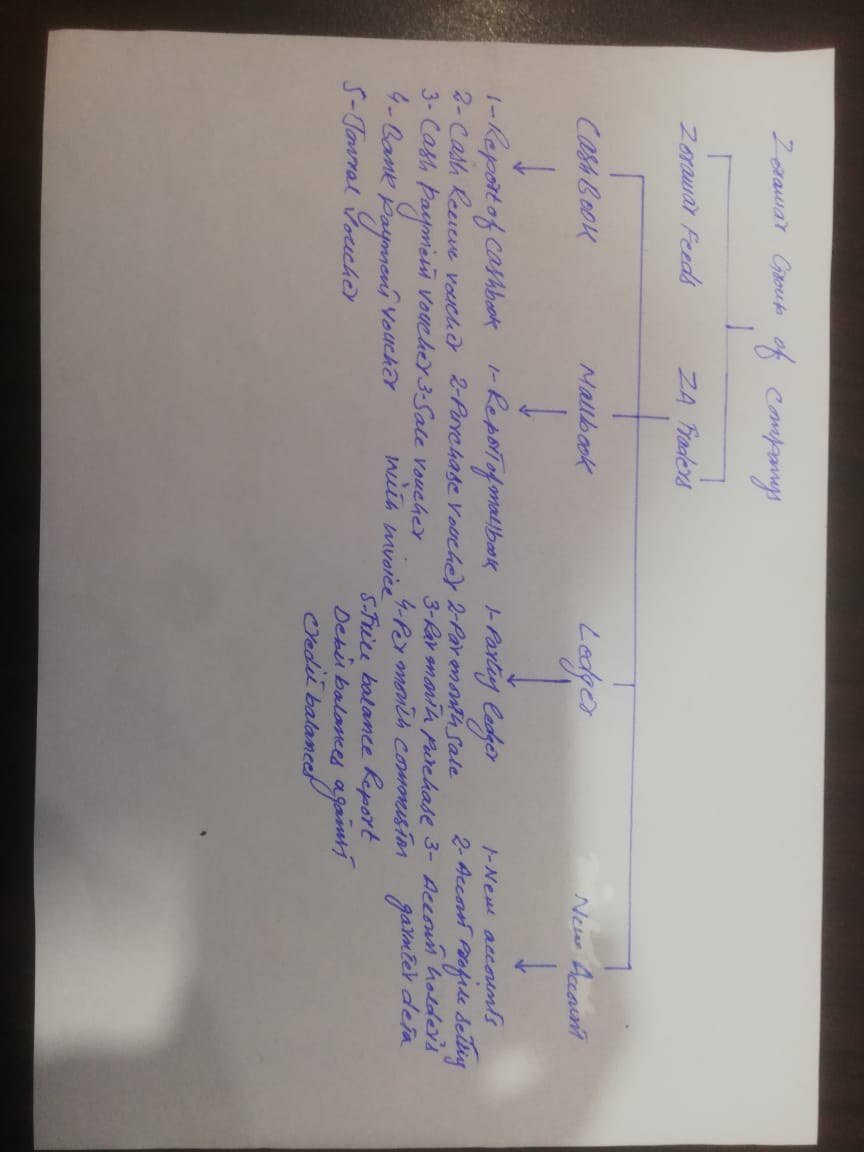 Zorawar Group of Companys
Zorawar Feeds
ZA Traders
CashBook
Mallbook
Ledger
New Account
1- Report of Cashbook
2- Cash Receive voucher
3- Cash Payment voucher
4- Bank payment voucher
5- voucher
1- Report of mallbook
2- Purchase voucher
3- Sale voucher
with invoice
1- Party ledger
2- Par month Sale
3- Par month Purchase
4- Per month commission
5- balance Report
Debit balances against
credit balances
1- New accounts
2- Account Profile Setting
3- Account holder's